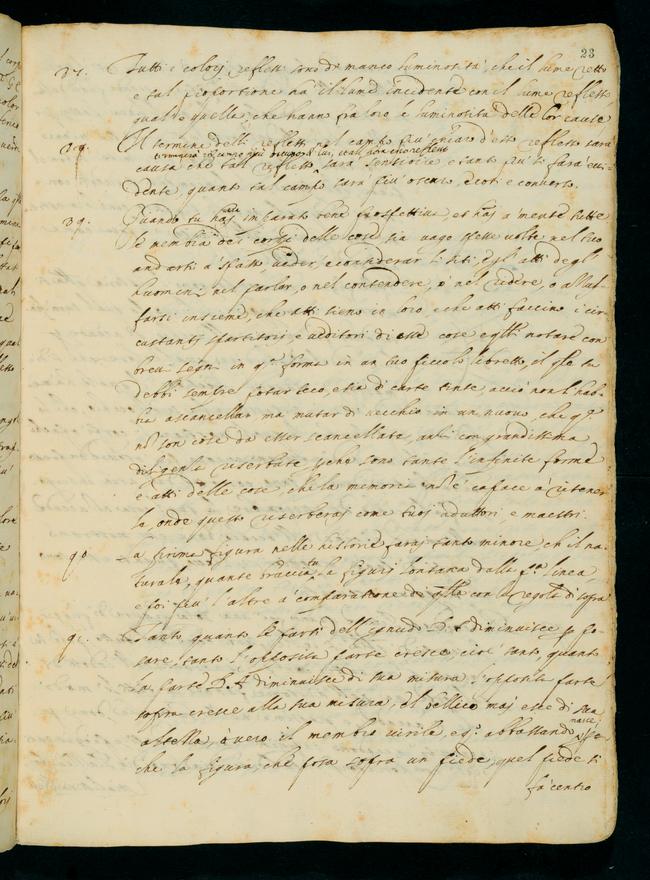 23
37. Tutti i colori reflessi sono di manco luminosità, che il lume retto
e tal proportione hà il lume incidente con il lume reflesso
qual è quella, che hanno frà loro le luminosita delle lor cause
Il termine delli reflessi nel campo più chiaro d'esso reflesso sarà
causa che tal reflesso sarà sensibile e tanto più si farà evi-
dente, quanto tal campo sara più oscuro, e così e converso.
39. Quando tu harai imparato bene prospettiva, et haj a mente tutte
le membra dei corpi delle cose sia vago spesse volte nel tuo
andarti à spasso, veder, e considerar i siti, e gl' atti degl'
huomini nel parlar, o nel contendere, ò nel ridere, o azzuf-
farsi insieme, che atti sieno in loro, e che atti faccino i cir-
custanti spartitori, e veditori di esse cose e quelli notare con
brevi segni in q.a forma in un tuo piccolo libretto, il qle tu
debbi sempre portar teco, e sia di carte tinte, acciò non l'hab-
bia a scancellar ma mutar di vecchio in un nuovo, che q.e
nō son cose da esser scancellate, anzi con grandissima
diligenza riserbate pche sono tante l'infinite forme
e atti delle cose, che la memoria nō è capace à ritener
la onde questo riserberai come tuoi aduttori e maestri.
40 La prima figura nelle historie farai tanto minore ch' il na-
turale, quante braccia tu la figuri lontana dalla p.a linea,
e poi più l'altre a comparatione di qlla con la regola di sopra
41. Tanto quanto le parti dell'ignudo B A diminuisce p po-
sare, tanto l'opposita parte cresce cioè tanto quanto
la parte B. A diminuisce di sua misura l'opposita parte
sopra cresce alla sua misura, el bellico maj esce di sua
altezza, ò vero il membro virile, e q.o abbassando nasce, pe-
che la figura, che posa sopra un piede, quel piede si
fà centro